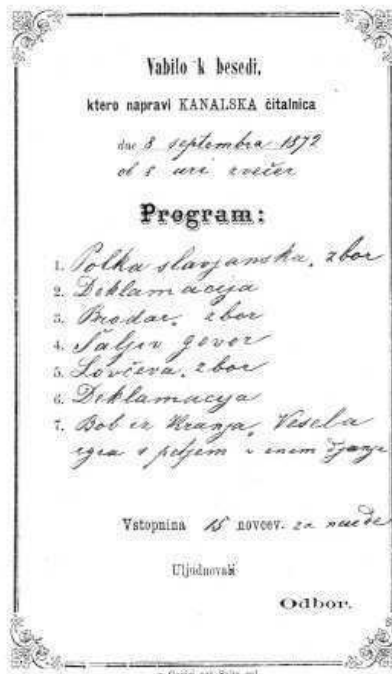 Vabilo k besedi,
ktero napravi KANALSKA čitalnica
dne 8 septembra 1872
ob 8 uri zvečer
Program:
1. Polka slavjanska, zbor
2. Deklamacija
3. Brodar, zbor
4. Šaljiv govor
5. Lovčeva, zbor
6. Deklamacija
7. Bob iz Kranja, Vesela
igra s petjem v enem djanje
Vstopnina 15 novcev. za neude
Uljudnovabi
Odbor.